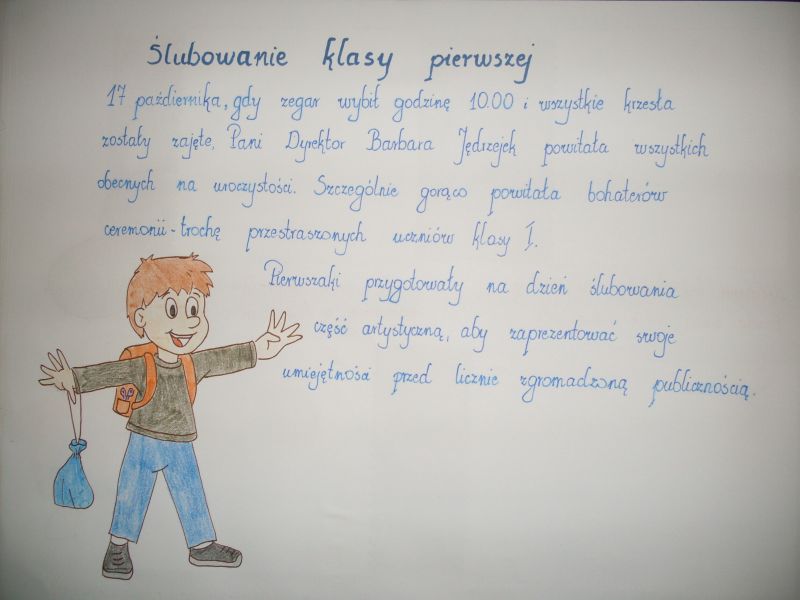 Ślubowanie klasy pierwszej
17 października, gdy zegar wybił godzinę 10.00 i wszystkie krzesła
zostały zajęte, Pani Dyrektor Barbara Jędrzejek powitała wszystkich
obecnych na uroczystości. Szczególnie gorąco powitała bohaterów
ceremonii - trochę przestraszonych uczniów klasy I.
Pierwszaki przygotowały na dzień ślubowania
część artystyczną, aby zaprezentować swoje
umiejętności przed licznie zgromadzoną publicznością.